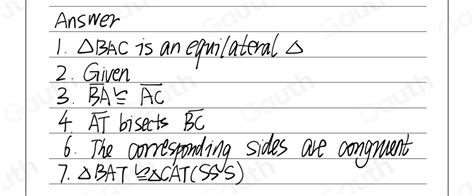 Answer
1. △BAC is an equilateral △
2. Given
3. B̅A̅ ≅ A̅C̅
4 A̅T̅ bisects B̅C̅
6. The corresponding sides are congruent
7. △BAT ≅△CAT(SSS)